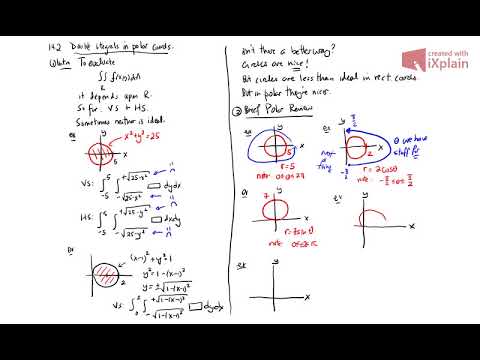 14.2 Double integrals in polar coords.
① Intro To evaluate
∬ f(x,y) dA
R
it depends upon R.
So far: VS + HS.
Sometimes neither is ideal.
eg
y
x²+y²=25
x
5
VS: ∫₋₅⁵ ∫₋√25-x²^+√25-x² □ dydx
HS: ∫₋₅⁵ ∫₋√25-y²^+√25-y² □ dxdy
eg
(x-1)²+y²=1
y²=1-(x-1)²
y=±√1-(x-1)²
2
VS: ∫₀² ∫₋√1-(x-1)²^+√1-(x-1)² □ dydx
Isn't there a better way?
Circles are nice!
But circles are less than ideal in rect. coords.
But in polar they're nicer.
② Brief Polar Review
eg
y
5
x
r=5
note 0≤θ≤2π
eg
y
π/2
x
2
-π/2
r=2cosθ
note: -π/2≤θ≤π/2
θ we have
stuff for
eg
y
7
x
r=7sinθ
note 0≤θ≤π
eg
y
x
eg
y
x
created with
iXplain